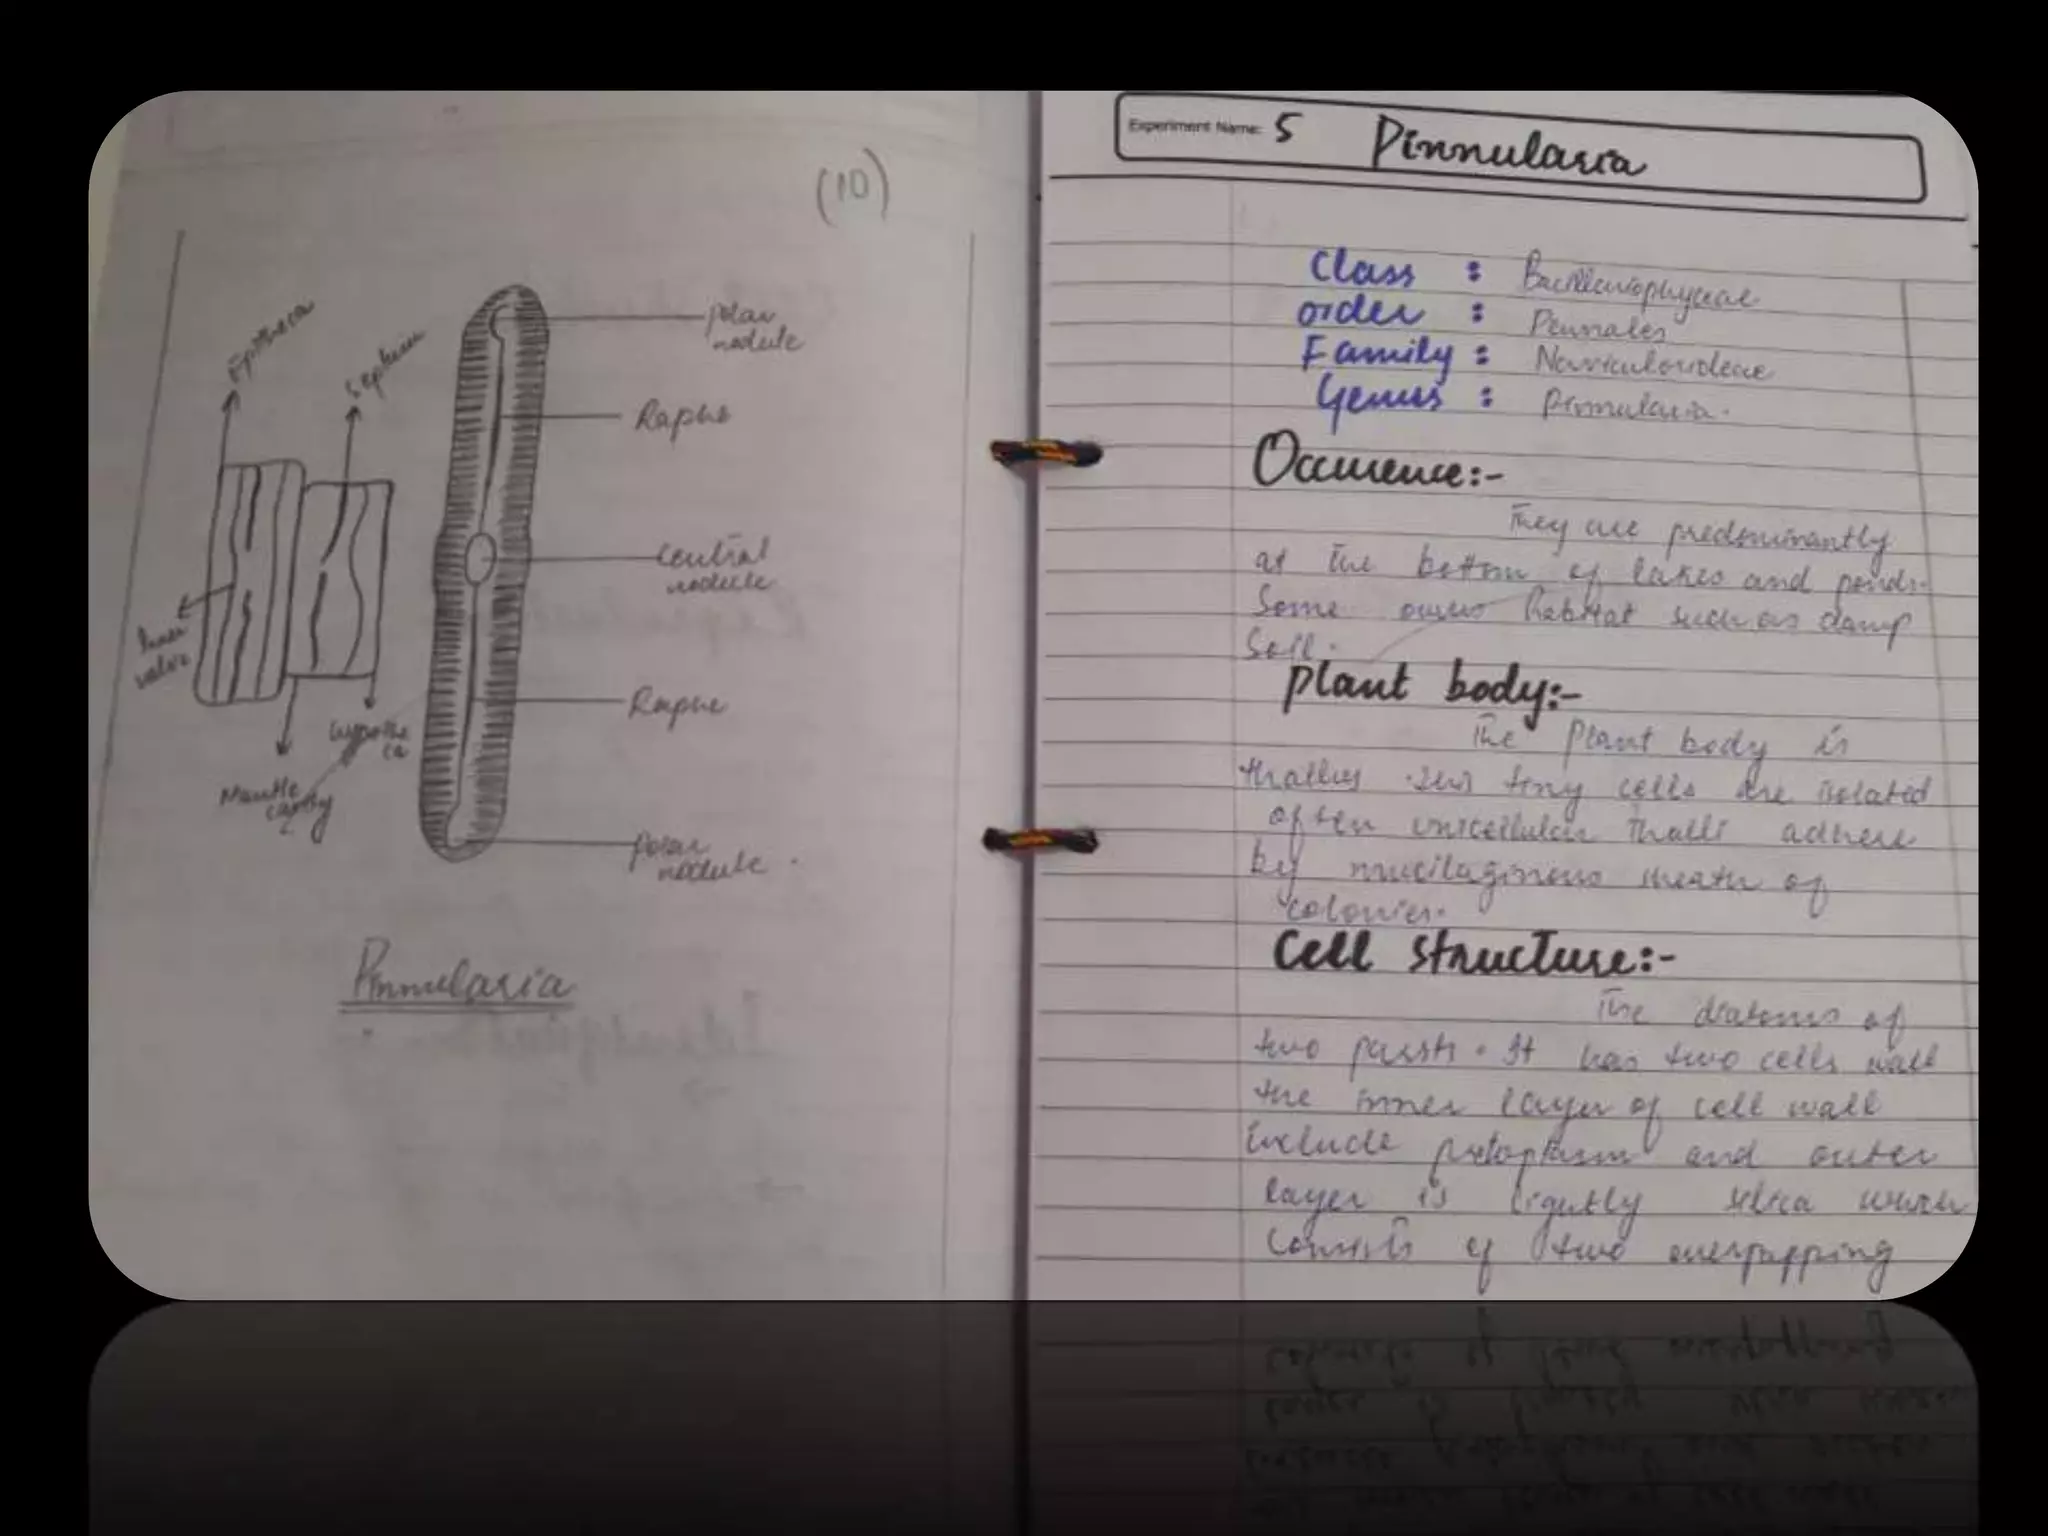 (10)
Epitheca
Septum
Inner
valve
Mantle
cavity
Hypothe
ca
Polar
nodule
Raphe
Central
nodule
Raphe
Polar
nodule.
Pinnularia
Experiment Name: 5 Pinnularia
Class : Bacillariophyceae
order : Pennales
Family : Naviculoideae
Genus : Pinnularia.
Occurence:-
They are predominantly
at the bottom of lakes and ponds.
Some habitat such as damp
Soil.
Plant body:-
The Plant body is
thallus tiny cells are isolated
often unicellular thalli adhere
by mucilaginous sheath of
colonies.
Cell structure:-
The diatoms of
two parts. It has two cells wall
the inner layer of cell wall
include and outer
layer is lightly silica which
consists of two overlapping